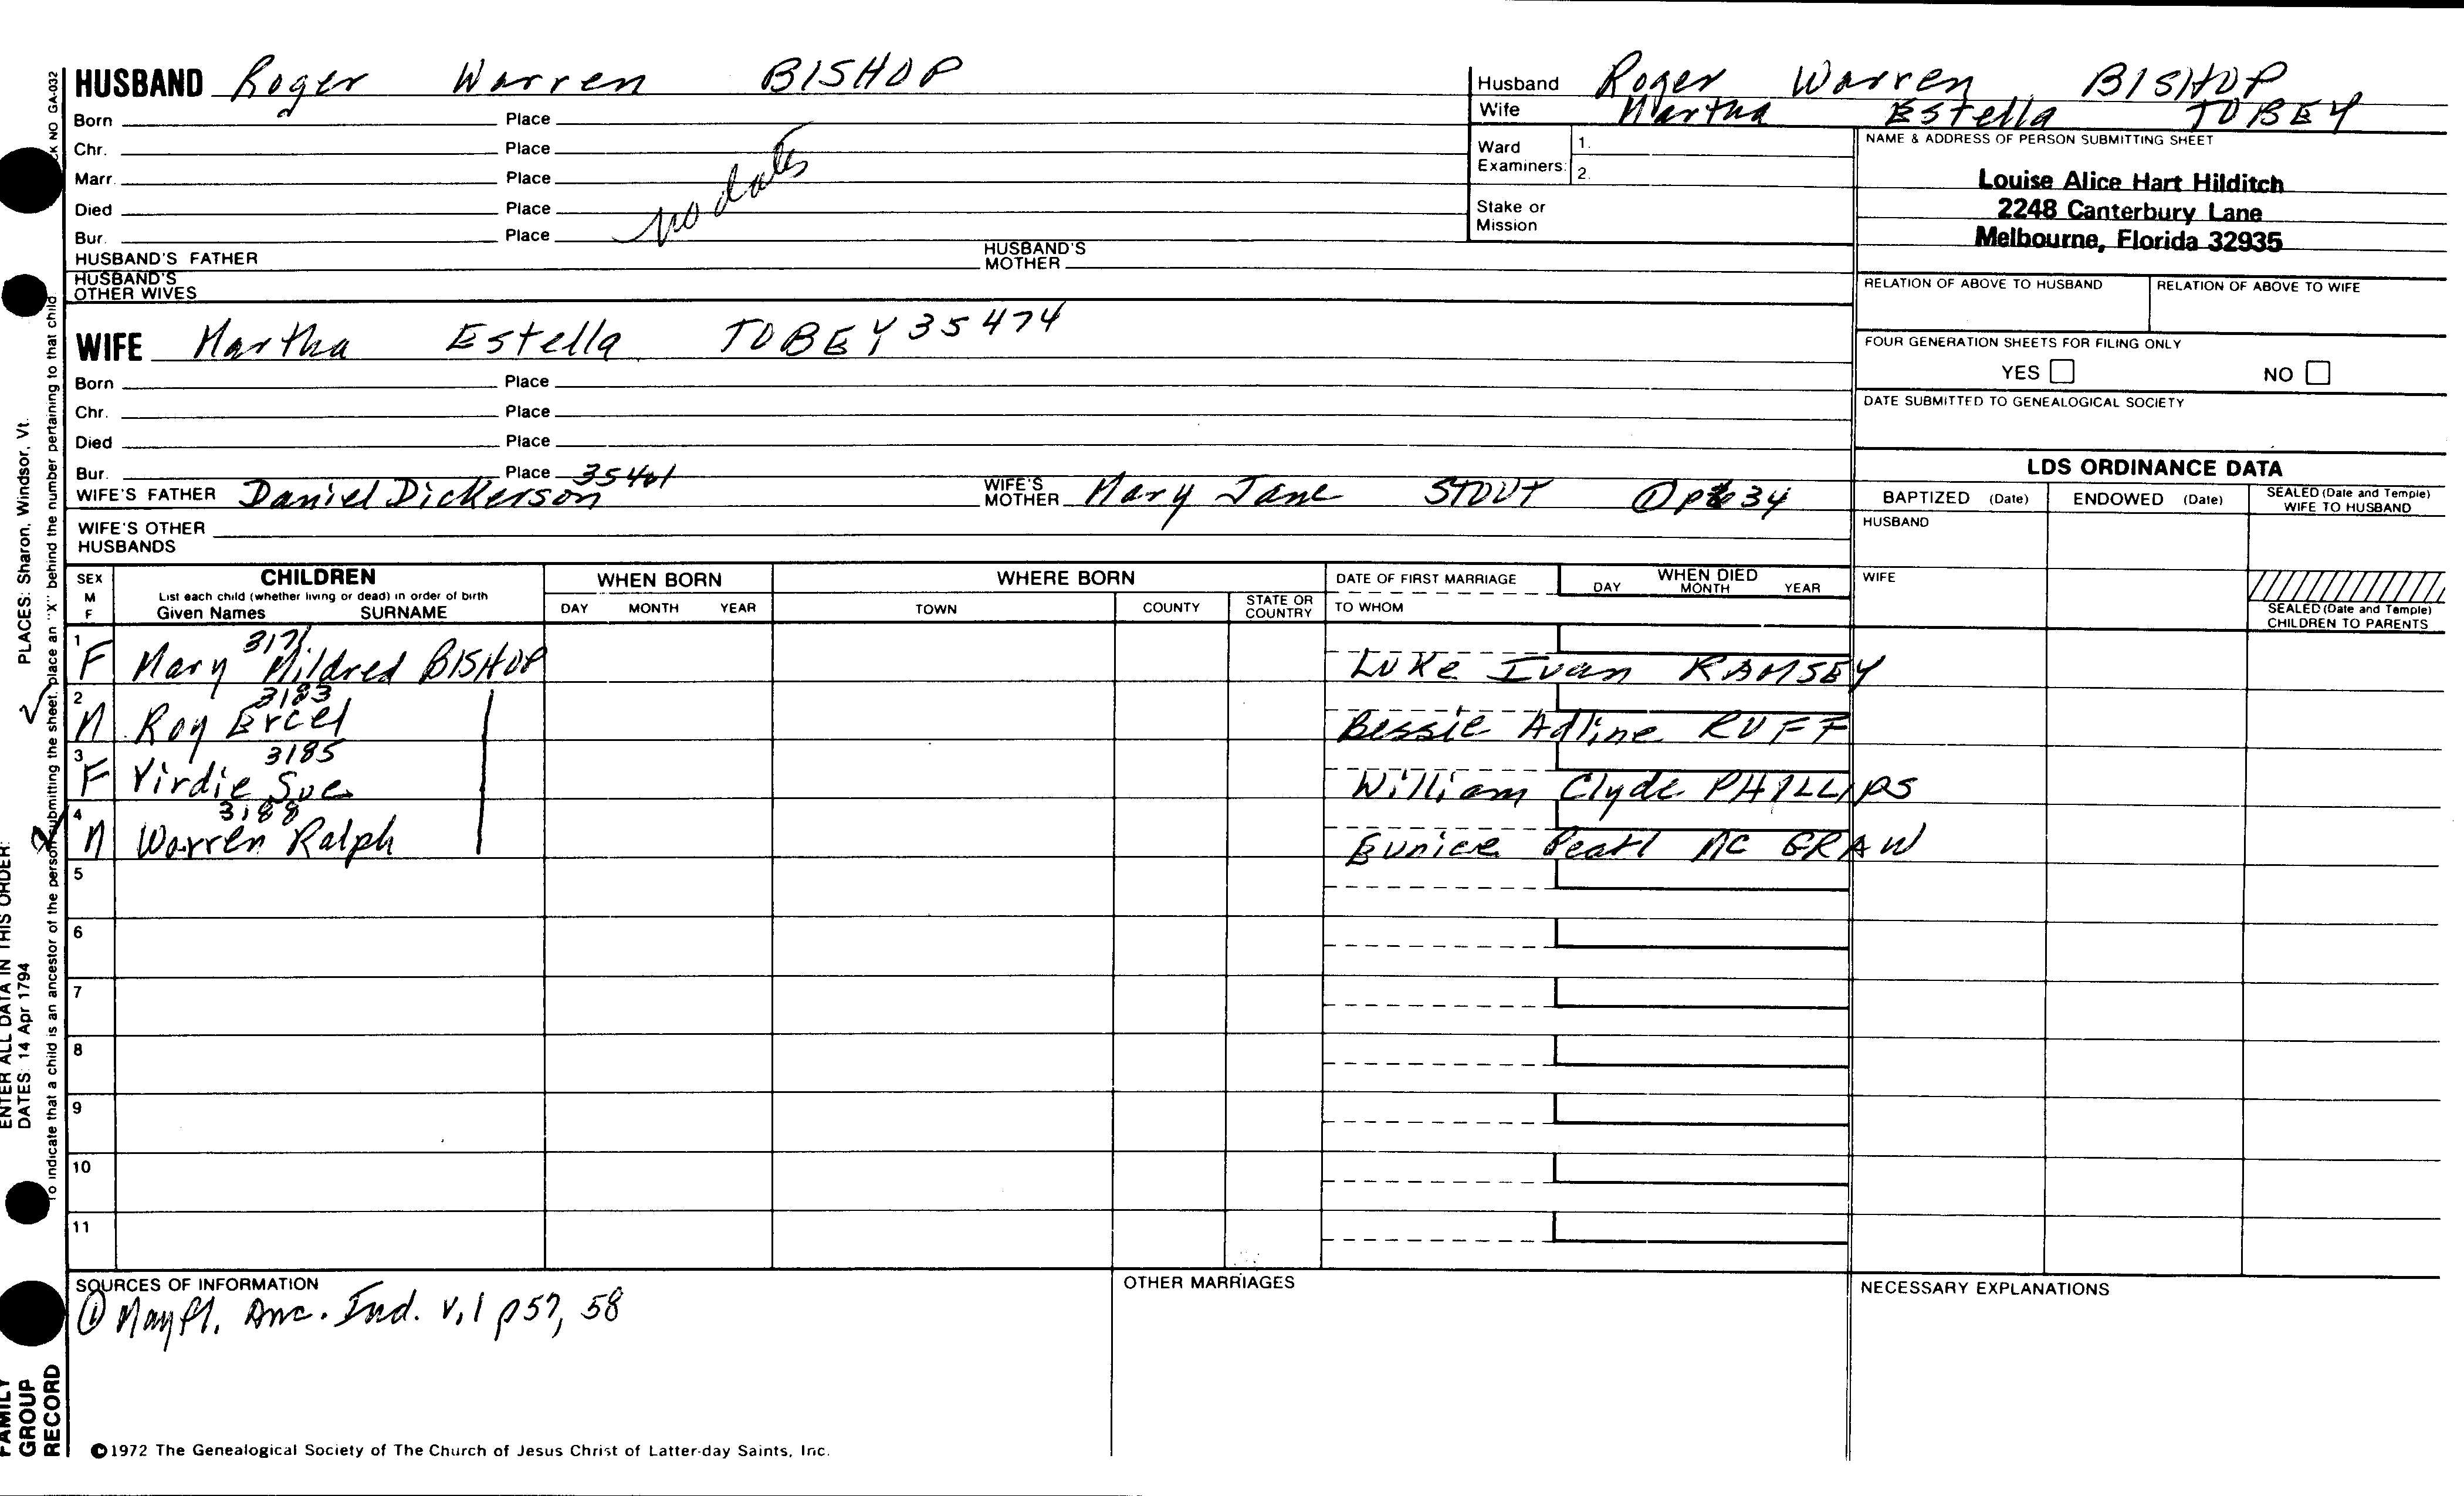 HUSBAND Roger Warren BISHOP
Born Place
Chr. Place
Marr. Place
Died Place
Bur. Place
no dates
HUSBAND'S FATHER HUSBAND'S MOTHER
HUSBAND'S OTHER WIVES
WIFE Martha Estella TOBEY 35474
Born Place
Chr. Place
Died Place
Bur. Place 35401
WIFE'S FATHER Daniel Dickerson WIFE'S MOTHER Mary Jane STOUT ① 34
WIFE'S OTHER HUSBANDS
Husband Roger Warren BISHOP
Wife Martha Estella TOBEY
Ward Examiners: 1.
2.
Stake or Mission
NAME & ADDRESS OF PERSON SUBMITTING SHEET
Louise Alice Hart Hilditch
2248 Canterbury Lane
Melbourne, Florida 32935
RELATION OF ABOVE TO HUSBAND RELATION OF ABOVE TO WIFE
FOUR GENERATION SHEETS FOR FILING ONLY
YES NO
DATE SUBMITTED TO GENEALOGICAL SOCIETY
LDS ORDINANCE DATA
BAPTIZED (Date) ENDOWED (Date) SEALED (Date and Temple) WIFE TO HUSBAND
HUSBAND
WIFE
SEALED (Date and Temple) CHILDREN TO PARENTS
SEX M F
CHILDREN
List each child (whether living or dead) in order of birth
Given Names SURNAME
WHEN BORN
DAY MONTH YEAR
WHERE BORN
TOWN COUNTY STATE OR COUNTRY
DATE OF FIRST MARRIAGE
TO WHOM
WHEN DIED
DAY MONTH YEAR
3171
1 F Mary Mildred BISHOP Luke Ivan RAMSEY
3183
2 M Roy Ercel Bessie Adline RUFF
3185
3 F Virdie Sue William Clyde PHILLIPS
3188
4 M Warren Ralph Eunice Pearl Mc GRAW
5
6
7
8
9
10
11
SOURCES OF INFORMATION
① Mayfl. Anc. Ind. v.1 p57, 58
OTHER MARRIAGES
NECESSARY EXPLANATIONS
©1972 The Genealogical Society of The Church of Jesus Christ of Latter-day Saints, Inc.
FAMILY
GROUP
RECORD
ENTER ALL DATA IN THIS ORDER:
DATES: 14 Apr 1794 PLACES: Sharon, Windsor, Vt.
To indicate that a child is an ancestor of the person submitting the sheet, place an "X" behind the number pertaining to that child
NO GA-032